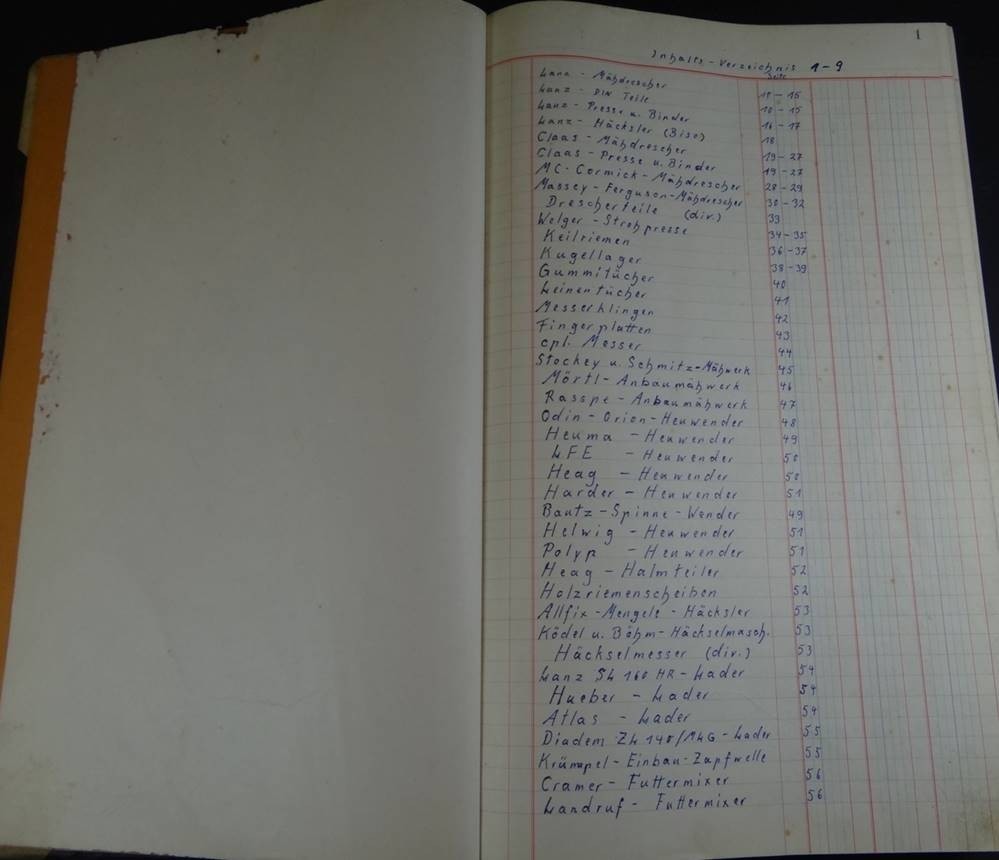 1
Inhalts-Verzeichnis 1-9
Seite
Lanz - Mähdrescher 11-15
Lanz - DIN Teile 10-15
Lanz - Presse u. Binder 16-17
Lanz - Häcksler (Biso) 18
Claas - Mähdrescher 19-27
Claas - Presse u. Binder 19-27
MC-Cormick-Mähdrescher 28-29
Massey-Ferguson-Mähdrescher 30-32
Drescherteile (div.) 33
Welger-Strohpresse 34-35
Keilriemen 36-37
Kugellager 38-39
Gummitücher 40
Leinentücher 41
Messerklingen 42
Fingerplatten 43
cpl. Messer 44
Stockey u. Schmitz-Mähwerk 45
Mörtl-Anbaumähwerk 46
Rasspe-Anbaumähwerk 47
Odin-Orion-Heuwender 48
Heuma - Heuwender 49
LFE - Heuwender 50
Heag - Heuwender 50
Harder - Heuwender 51
Bautz-Spinne-Wender 49
Helwig - Heuwender 51
Polyp - Heuwender 51
Heag - Halmteiler 52
Holzriemenscheiben 52
Allfix-Mengele-Häcksler 53
Ködel u. Böhm-Häckselmasch. 53
Häckselmesser (div.) 53
Lanz SL 160 HR-Lader 54
Hueber - Lader 54
Atlas - Lader 54
Diadem ZL 140/MLG-Lader 55
Krümpel-Einbau-Zapfwelle 55
Cramer-Futtermixer 56
Landruf - Futtermixer 56